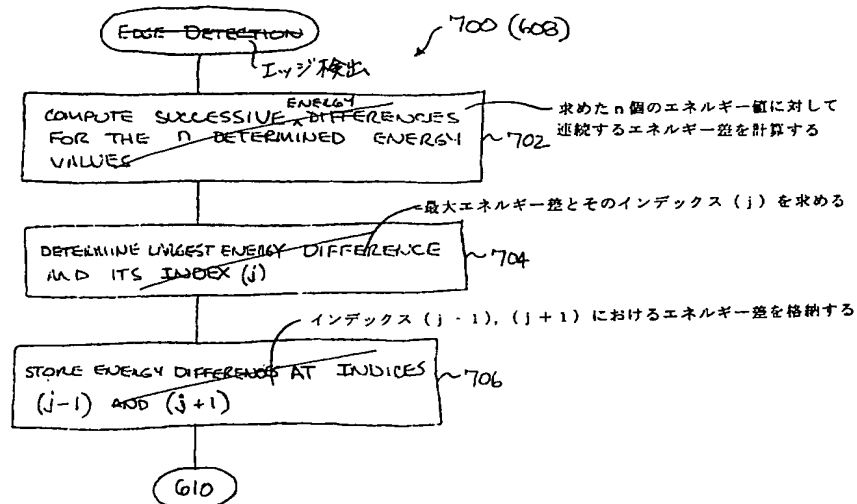 EDGE DETECTION
700 (608)
エッジ検出
COMPUTE SUCCESSIVE ENERGY DIFFERENCES
FOR THE n DETERMINED ENERGY
VALUES
702
求めたn個のエネルギー値に対して
連続するエネルギー差を計算する
最大エネルギー差とそのインデックス (j) を求める
DETERMINE LARGEST ENERGY DIFFERENCE
AND ITS INDEX (j)
704
インデックス (j-1), (j+1) におけるエネルギー差を格納する
STORE ENERGY DIFFERENCES AT INDICES
(j-1) AND (j+1)
706
610